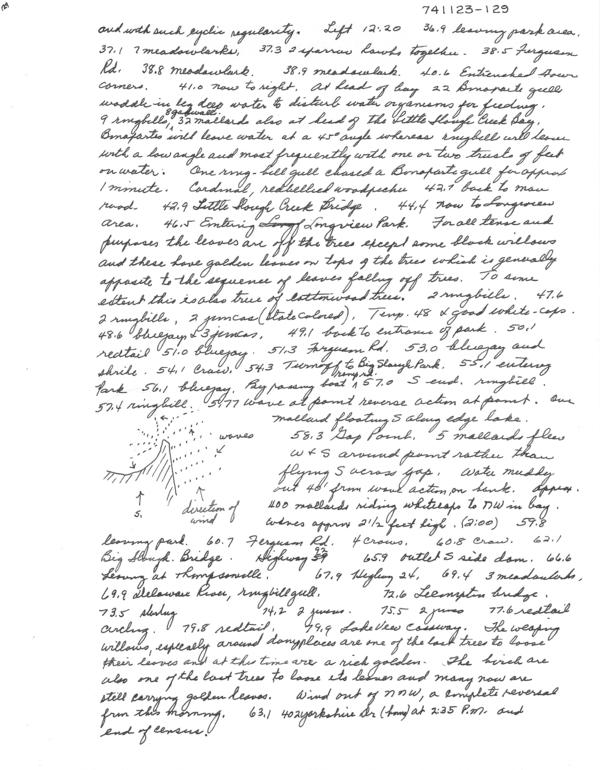 741123-129
and with such cyclic regularity. Left 12:20 36.9 leaving park area.
37.1 7 meadowlarks, 37.3 2 sparrow hawks together. 38.5 Ferguson
Rd. 38.8 meadowlark. 38.9 meadowlark. 40.6 Entrenched
corners. 41.0 now to right. At head of bay 22 Bonaparte gulls
waddle in leg deep water to disturb water organisms for feeding.
9 ringbills, 8 gadwall 32 mallards also at head of the Little Slough Creek Bay.
Bonapartes will leave water at a 45° angle whereas ringbill will leave
with a low angle and most frequently with one or two trusts of feet
on water. One ring-bill gull chased a Bonaparte gull for approx
1 minute. Cardinal, redbellied woodpecker 42.7 back to main
road. 42.9 Little Slough Creek Bridge. 44.4 now to Longview
area. 46.5 Entering Longview Park. For all tense and
purposes the leaves are off the trees except some black willows
and these have golden leaves on tops of the trees which is generally
opposite to the sequence of leaves falling off trees. To some
extent this is also true of cottonwood trees. 2 ringbills. 47.6
2 ringbills, 2 juncos (slate colored), Temp. 48 & good white-caps.
48.6 bluejay & 3 juncos, 49.1 back to entrance of park. 50.1
redtail 51.0 bluejay. 51.3 Ferguson Rd. 53.0 bluejay and
shrike. 54.1 Crow. 54.3 Turnoff to Big Slough Park. 55.1 entering
Park 56.1 bluejay. By passing boat ramp rd. 57.0 S end. ringbill.
57.4 ringbill. 57.7 wave at point reverse action at point. One
mallard floating S along edge lake.
waves 58.3 Gap Point. 5 mallards flew
W & S around point rather than
flying S across gap. Water muddy
out 40' from wave action on bank. Approx.
S. direction of wind
400 mallards riding whitecaps to NW in bay.
waves approx 2 1/2 feet high. (2:00) 59.8
leaving park. 60.7 Ferguson Rd. 4 crows. 60.8 Crow. 62.1
Big Slough Bridge. Highway 92 65.9 outlet S side dam. 66.6
leaving at Thompsonville. 67.9 Highway 24, 69.4 3 meadowlarks,
69.9 Delaware River, ringbill gull. 72.6 Lecompton bridge.
73.5 starling 74.2 2 juncos. 75.5 2 juncos 77.6 redtail
circling. 79.8 redtail. 79.9 Lake View Causway. The weeping
willows, especially around damp places are one of the last trees to loose
their leaves and at this time are a rich golden. The birch are
also one of the last trees to loose its leaves and many now are
still carrying golden leaves. Wind out of NNW, a complete reversal
from this morning. 63.1 402 Yorkshire Dr (home) at 2:35 P.M. and
end of census.